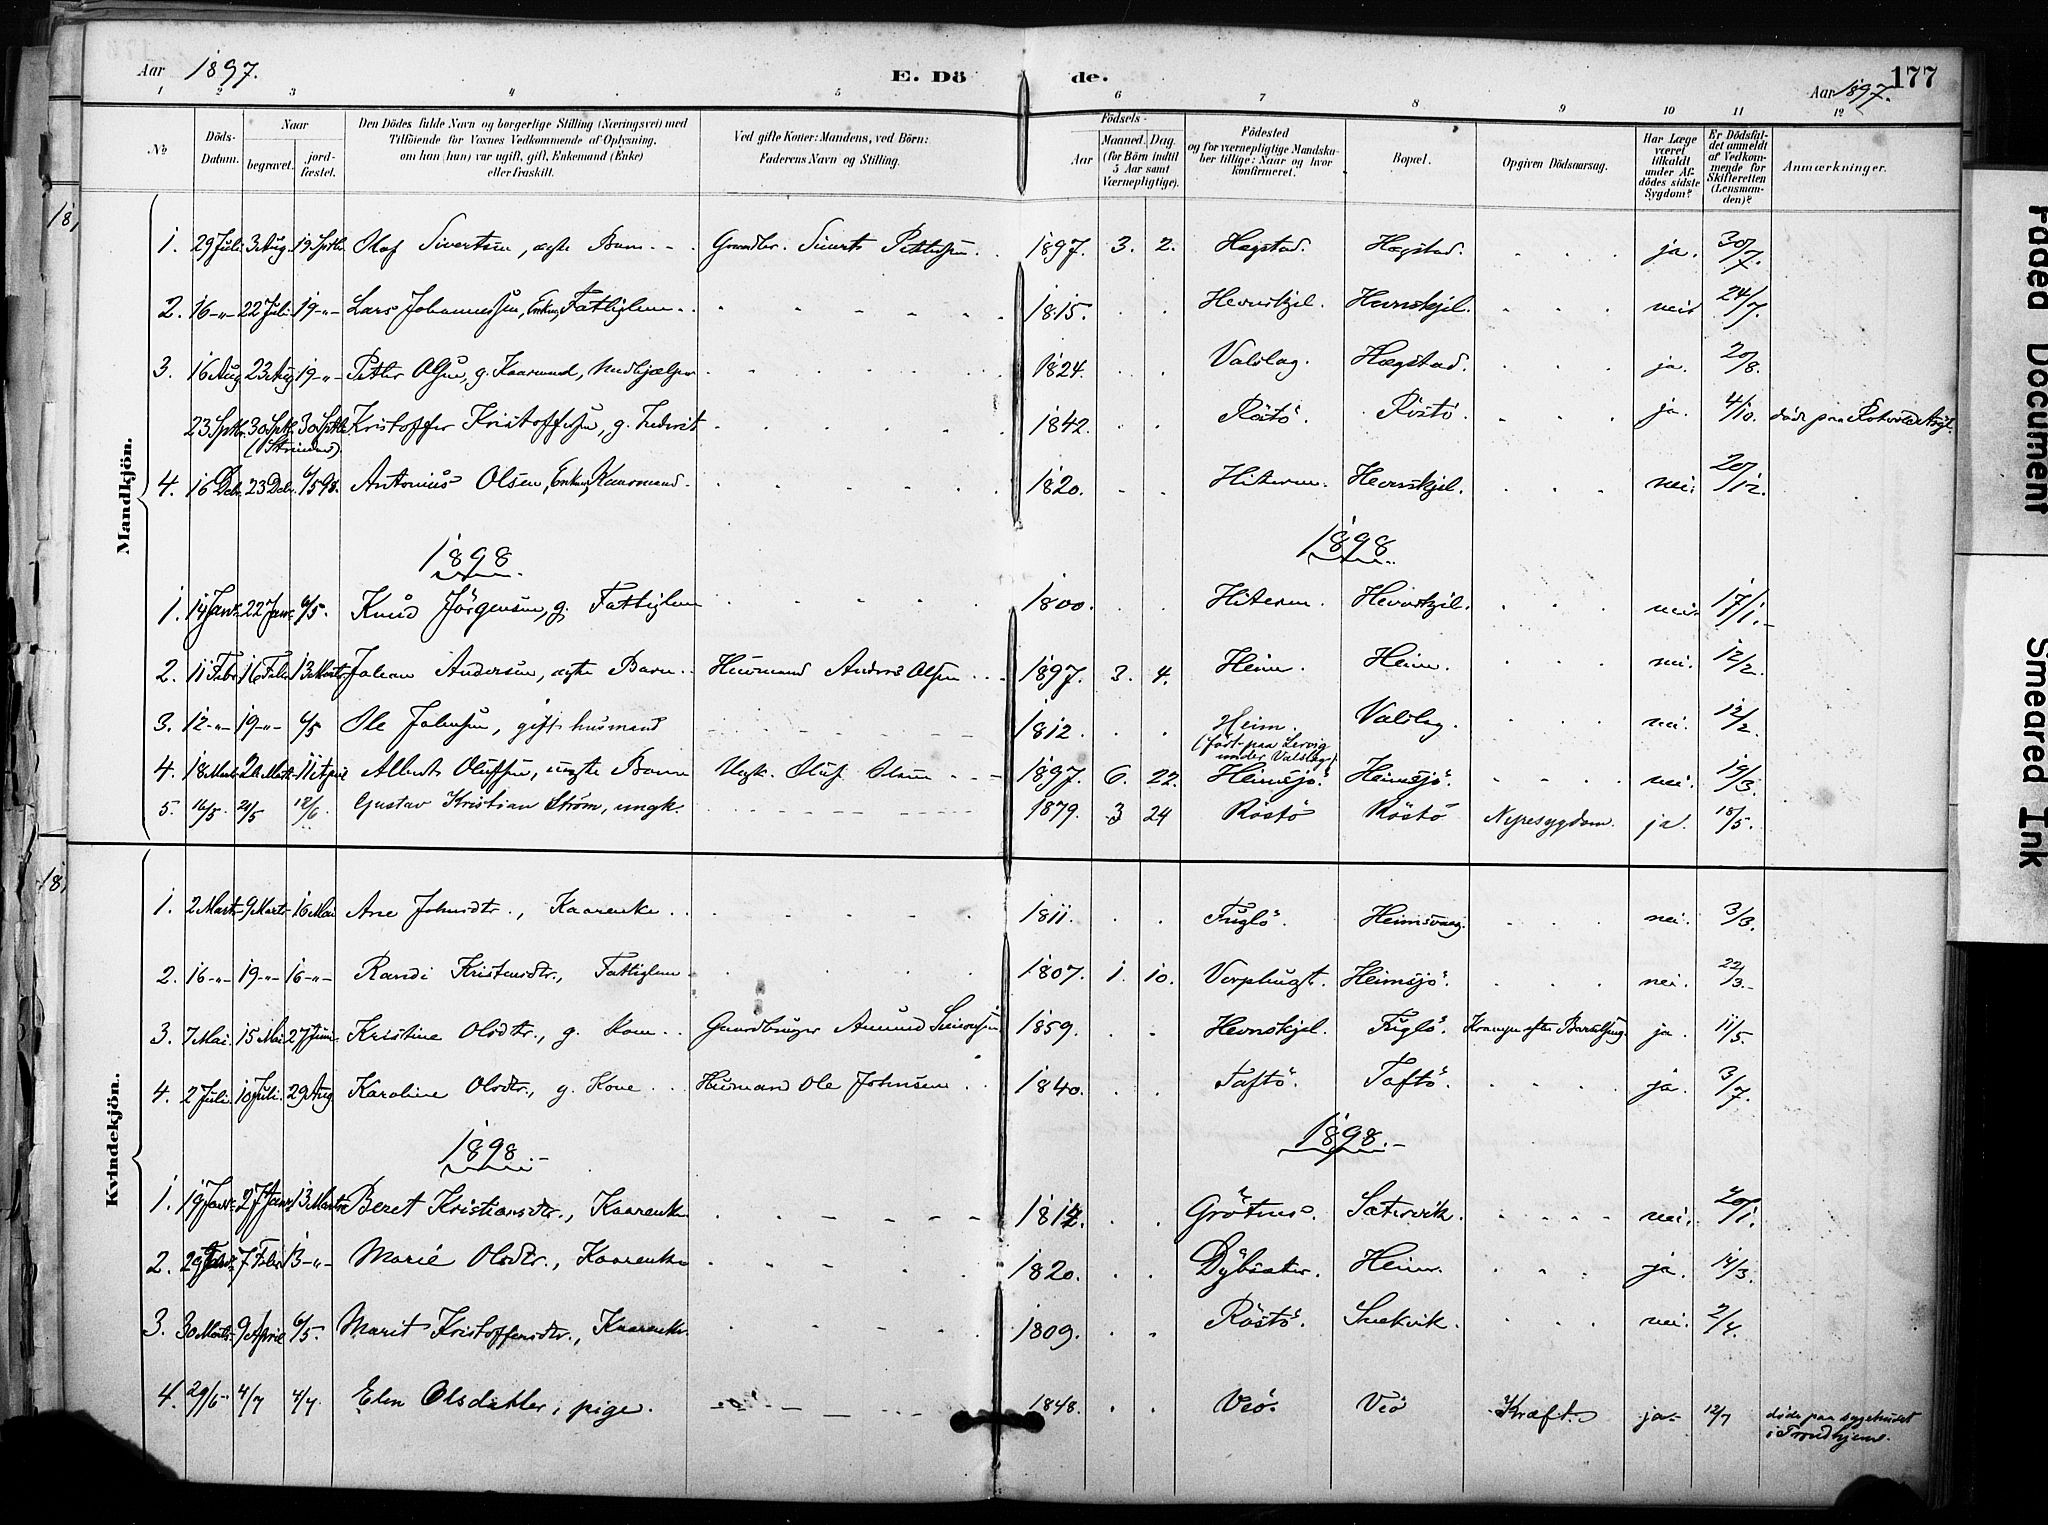 Aar 1897. E. Dö de. Aar 1897. 177
1 2 3 4 5 6 7 8 9 10 11 12
No
Döds-Datum.
Naar
begravet.
jord-fæstet.
Den Dödes fulde Navn og borgerlige Stilling (Næringsvei) med
Tilföiende for Voxnes Vedkommende af Oplysning,
om han (hun) var ugift, gift, Enkemand (Enke)
eller fraskilt.
Ved gifte Koner: Mandens, ved Börn:
Faderens Navn og Stilling.
Födsels-
Aar
Maaned. Dag.
(for Börn indtil
5 Aar samt
Værnepligtige).
Födested
og for værnepligtige Mandska-
ber tillige: Naar og hvor
konfirmeret.
Bopæl.
Opgiven Dödsaarsag.
Har Læge
været
tilkaldt
under Af-
dödes sidste
Sygdom?
Er Dödsfal-
det anmeldt
af Vedkom-
mende for
Skifteretten
(Lensman-
den)?
Anmærkninger.
18
Mandkjön.
1. 29 Juli 3 Aug. 19 Sptbr. Olaf Sivertsen, ægte Barn Gaardbr. Sivert Pettersen 1897. 3. 2. Hægstad. Hægstad. ja. 30/7.
2. 16-"- 22 Juli 19-"- Lars Johannessen, Enkem, Fattiglem 1815. Hevnskjel. Hevnskjel. nei 24/7.
3. 16 Aug 23 Aug 19-"- Petter Olsen, g. Kaarmand, 1824. Valslag. Hægstad. ja. 20/8.
23 Sptbr. 30 Sptb. 30 Sptbr Kristoffer Kristoffersen, g. 1842. Röstö. Röstö. ja. 4/10. döde paa Rotvold Asyl.
(Strinden)
4. 16 Debr. 23 Debr. 6/5 98. Antonius Olsen, Enkem, Kaarmand 1820. Hiteren. Hevnskjel. nei. 20/12.
1898 1898.
1. 14 Janr. 22 Janr 6/5. Knud Jörgensen, g. Fattiglem 1800. Hiteren. Hevnskjel. nei. 17/1.
2. 11 Febr 16 Febr 13 Marts Johan Andersen, ægte Barn Husmand Anders Olsen 1897. 3. 4. Heim. Heim. nei. 12/2.
3. 12-"- 19-"- 6/5 Ole Johnsen, gift husmand 1812. Heim. Valslag. nei. 12/2.
(födt paa Lervig
under Valslag)
4. 18 Marts 26 Marts 11 April Albert Olufsen, uægte Barn Ungk. Oluf Olsen 1897. 6. 22. Heimsjö. Heimsjö. nei. 19/3.
5. 16/5. 21/5 12/6 Gustav Kristian Ström, ungk. 1879. 3 24 Röstö Röstö Nyresygdom. ja. 18/5.
18
Kvindekjön.
1. 2 Marts 9 Marts 16 Mai Ane Johnsdtr., Kaarenke 1811. Fuglö. Heimsvaag. nei. 3/3.
2. 16-"- 19-"- 16-"- Randi Kristensdtr., Fattiglem 1807. 1. 10. Vorphugt. Heimsjö. nei. 22/3.
3. 7 Mai. 15 Mai. 27 Juni. Kristine Olsdtr., g. Kone Gaardbruger Amund Simonsen 1859. Hevnskjel. Fuglö. Krampe efter Barselseng. ja. 11/5.
4. 2 Juli. 10 Juli. 29 Aug. Karoline Olsdtr., g. Kone Husmand Ole Johnsen 1840. Taftö. Taftö. ja. 3/7.
1898. 1898.
1. 19 Janr. 27 Janr 13 Marts Beret Kristiansdtr., Kaarenke 1814. Grötnes. Sætervik. nei. 20/1.
2. 29 Janr. 7 Febr 13-"- Marie Olsdtr., Kaarenke 1820. Dybsæter. Heim. ja. 14/3.
3. 30 Marts 9 April 6/5. Marit Kristoffersdtr., Kaarenke 1809. Röstö. Snekvik. nei. 2/4.
4. 29/6. 4/7 4/7. Elen Olsdatter, pige. 1848. Veö. Veö Kræft. ja. 12/7 döde paa sygehuset
i Trondhjem.
Faded Document
Smeared Ink